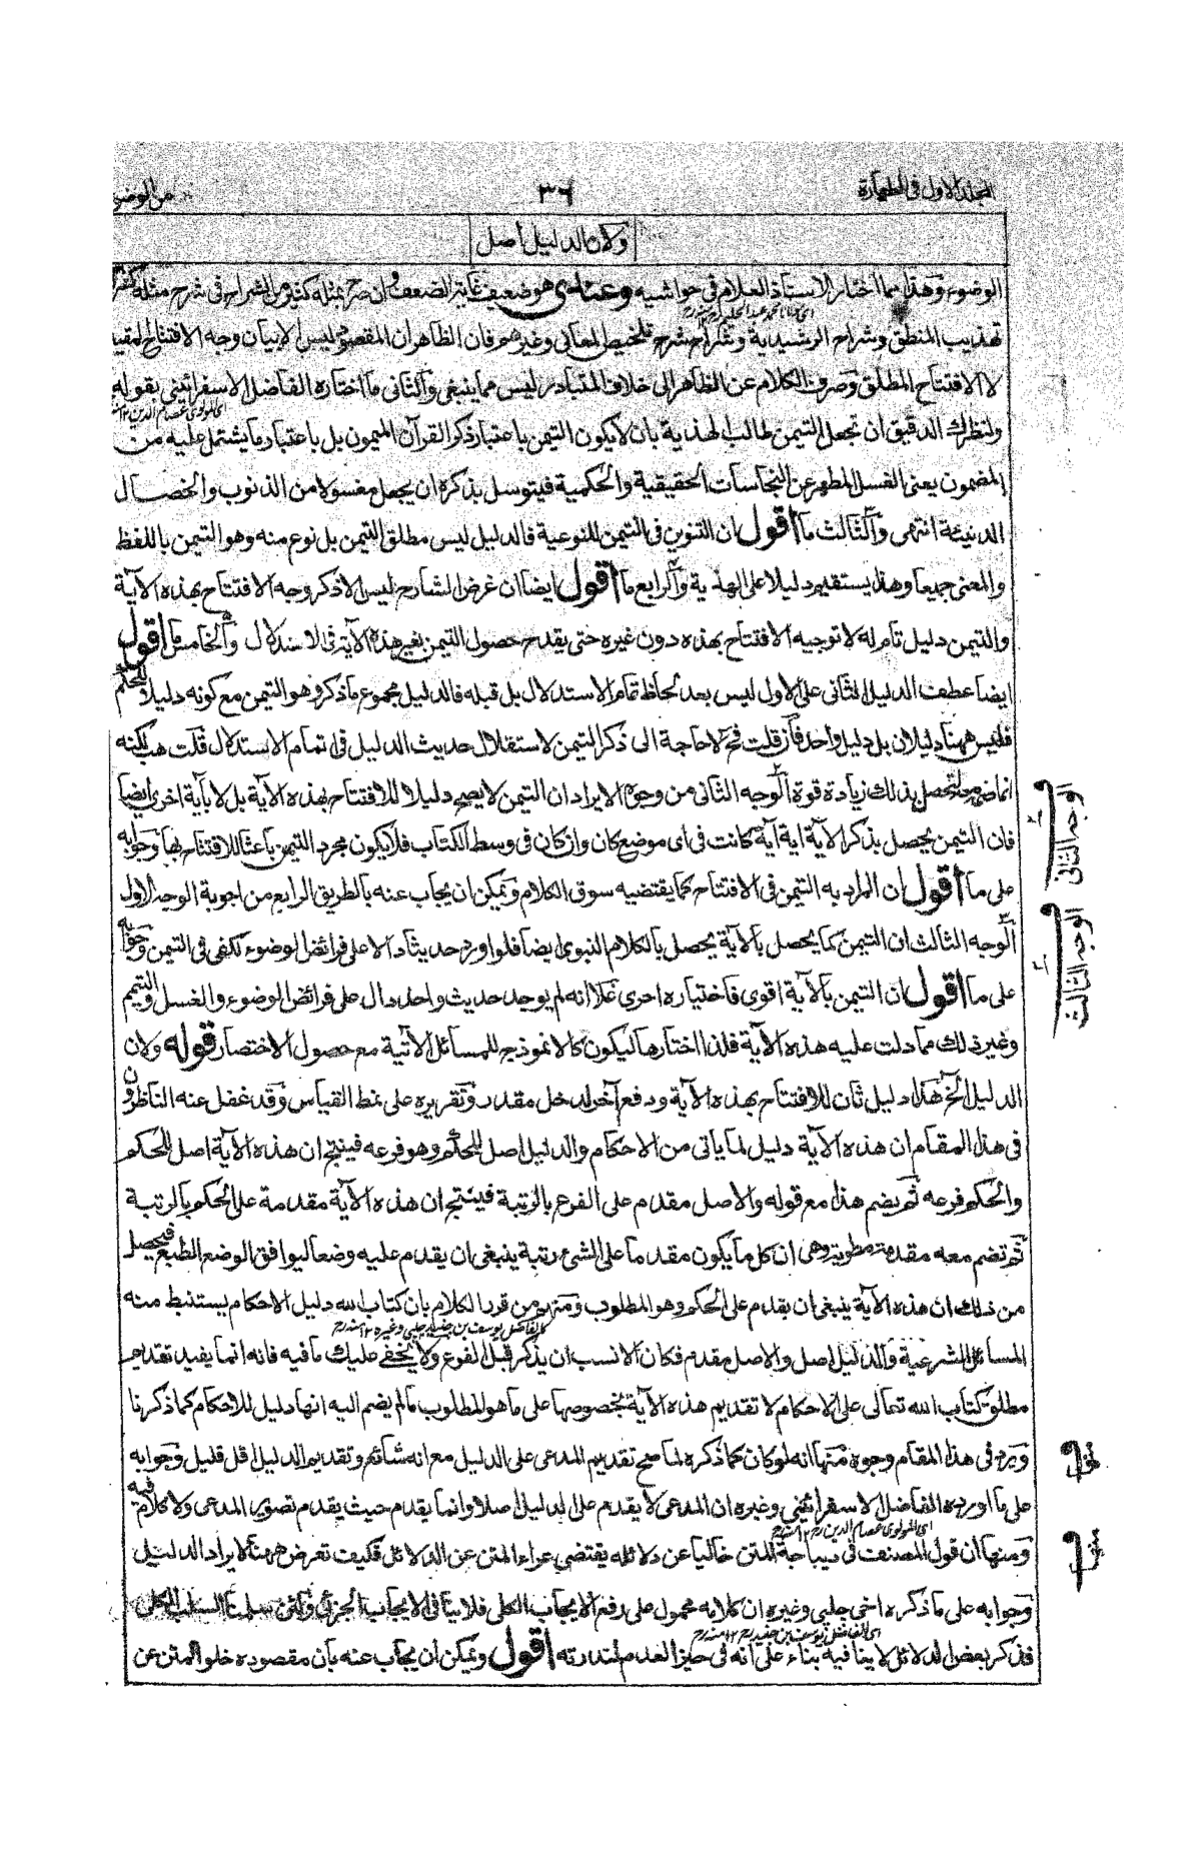 المجلد الاول فى الطهارة
٣٦
من الوضوء
ولان الدليل اصل
الوضوء وهذا مما اختاره الاستاذ العلام فى حواشيه وعندى هو ضعيف غاية الضعف وان صرح بمثله كثير من الشراح فى شرح مثله
اى مولانا محمد عبد الحليم رح ١٢ منه رح
تهذيب المنطق وشراح الرشيدية وشراح شرح تلخيص المعانى وغيرهم فان الظاهر ان المقصود ليس الا بيان وجه الافتتاح المقيد
لا الافتتاح المطلق وصرف الكلام عن الظاهر الى خلاف المتبادر ليس مما ينبغى والثانى ما اختاره الفاضل الاسفرائينى بقوله
اى المولوى عصام الدين ١٢ منه
ولنظرك الدقيق ان تجعل التيمن طالب الهذية بان لا يكون التيمن باعتبار ذكر القرآن الميمون بل باعتبار ما يشتمل عليه من
المضمون يعنى الغسل المطهر عن النجاسات الحقيقية والحكمية فيتوسل بذكره ان يجعل مغسولا من الذنوب والخصال
الدنيئة انتهى والثالث ما اقول ان التنوين فى التيمن للنوعية فالدليل ليس مطلق التيمن بل نوع منه وهو التيمن باللفظ
والمعنى جميعا وهذا يستقيم دليلا على الهذية والرابع ما اقول ايضا ان غرض الشارح ليس الا ذكر وجه الافتتاح بهذه الآية
والتيمن دليل تام له لا توجيه الافتتاح بهذه دون غيره حتى يقدح حصول التيمن بغير هذه الآية فى الاستدلال والخامس ما اقول
ايضا عطف الدليل الثانى على الاول ليس بعد لحاظ تمام الاستدلال بل قبله فالدليل مجموع ما ذكر وهو التيمن مع كونه دليلا للحكم
فليس ههنا دليلان بل دليل واحد فان قلت فح لا حاجة الى ذكر التيمن لاستقلال حديث الدليل فى اتمام الاستدلال قلت هب لكنه
انما ضم معه ليحصل بذلك زيادة قوة الوجه الثانى من وجوه الايراد ان التيمن لا يصح دليلا للافتتاح بهذه الآية بل لآية اخرى ايضا
فان التيمن يحصل بذكر الآية اية آية كانت فى اى موضع كان وان كان فى وسط الكتاب فلا يكون مجرد التيمن باعثا للافتتاح بها وجوابه
على ما اقول ان المراد به التيمن فى الافتتاح كما يقتضيه سوق الكلام ويمكن ان يجاب عنه بالطريق الرابع من اجوبة الوجه الاول
الوجه الثالث ان التيمن كما يحصل بالآية يحصل بالكلام النبوى ايضا فلو اورد حديثا دالا على فرائض الوضوء لكفى فى التيمن وجوابه
على ما اقول ان التيمن بالآية اقوى فاختياره احرى علا انه لم يوجد حديث واحد دال على فرائض الوضوء والغسل والتيمم
وغير ذلك مما دلت عليه هذه الآية فلذا اختارها ليكون كالانموذج للمسائل الآتية مع حصول الاختصار قوله ولان
الدليل الخ هذا دليل ثان للافتتاح بهذه الآية ودفع آخر لدخل مقدر وتقريره على نمط القياس وقد غفل عنه الناظرون
فى هذا المقام ان هذه الآية دليل لما ياتى من الاحكام والدليل اصل للحكم وهو فرعه فينتج ان هذه الآية اصل للحكم
والحكم فرعه ثم يضم هذا مع قوله والاصل مقدم على الفرع بالرتبة فينتج ان هذه الآية مقدمة على الحكم بالرتبة
ثم تضم معه مقدمة مطوية وهى ان كل ما يكون مقدما على الشئ رتبة ينبغى ان يقدم عليه وضعا ليوافق الوضع الطبع فيحصل
من ذلك ان هذه الآية ينبغى ان يقدم على الحكم وهو المطلوب ومنهم من قرر الكلام بان كتاب الله دليل الاحكام يستنبط منه
كالفاضل يوسف بن جنيد چلبى وغيره ١٢ منه رح
المسائل الشرعية والدليل اصل والاصل مقدم فكان الانسب ان يذكر قبل الفرع ولا يخفى عليك ما فيه فانه انما يفيد تقديم
مطلق كتاب الله تعالى على الاحكام لا تقديم هذه الآية بخصوصها على ما هو المطلوب ما لم يضم اليه انها دليل للاحكام كما ذكرنا
ويرد فى هذا المقام وجوه منها انه لو كان كما ذكره لما صح تقديم المدعى على الدليل مع انه شائع وتقديم الدليل اقل قليل وجوابه
على ما اورده الفاضل الاسفرائينى وغيره ان المدعى لا يقدم على الدليل اصلا وانما يقدم حيث يقدم تصوير المدعى ولا كلام فيه
اى المولوى عصام الدين رح ١٢ منه رح
ومنها ان قول المصنف فى ديباجة المتن خاليا عن دلائله يقتضى عراء المتن عن الدلائل فكيف تعرض ههنا لايراد الدليل
وجوابه على ما ذكره اخى چلبى وغيره ان كلامه محمول على رفع الايجاب الكلى فلا ينافى الايجاب الجزئى ولئن سلمنا السلب الكلى
اى الفاضل يوسف بن جنيد رح ١٢ منه رح
فذكر بعض الدلائل لا ينافيه بناء على انه فى حيز العدم لندرته اقول ويمكن ان يجاب عنه بان مقصوده خلو المتن عن
الوجه الثانى
الوجه الثالث